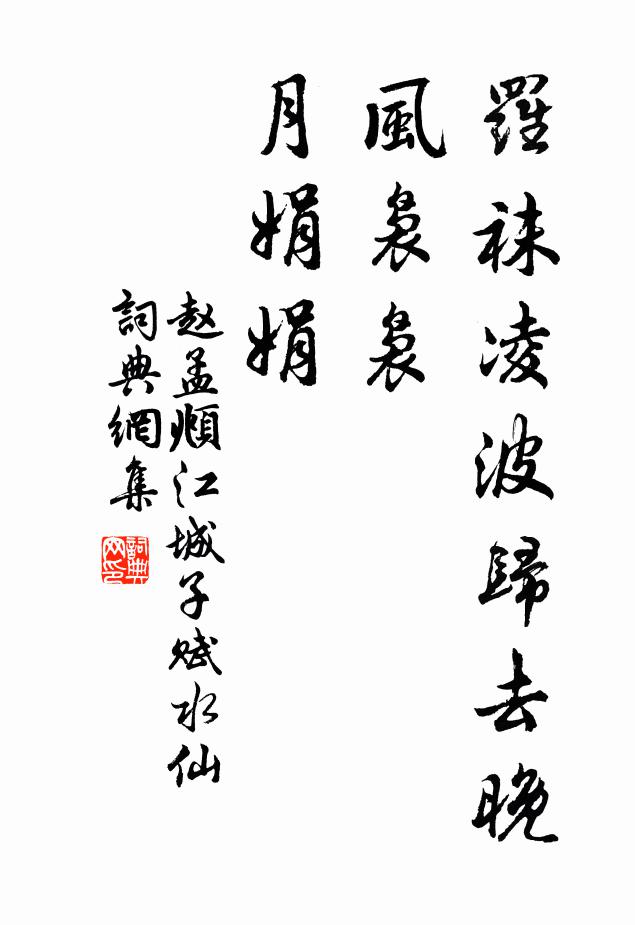 羅袜凌波歸去晚
風裊裊
月娟娟
赵孟頫江城子赋水仙
詞典網集
詞典网印